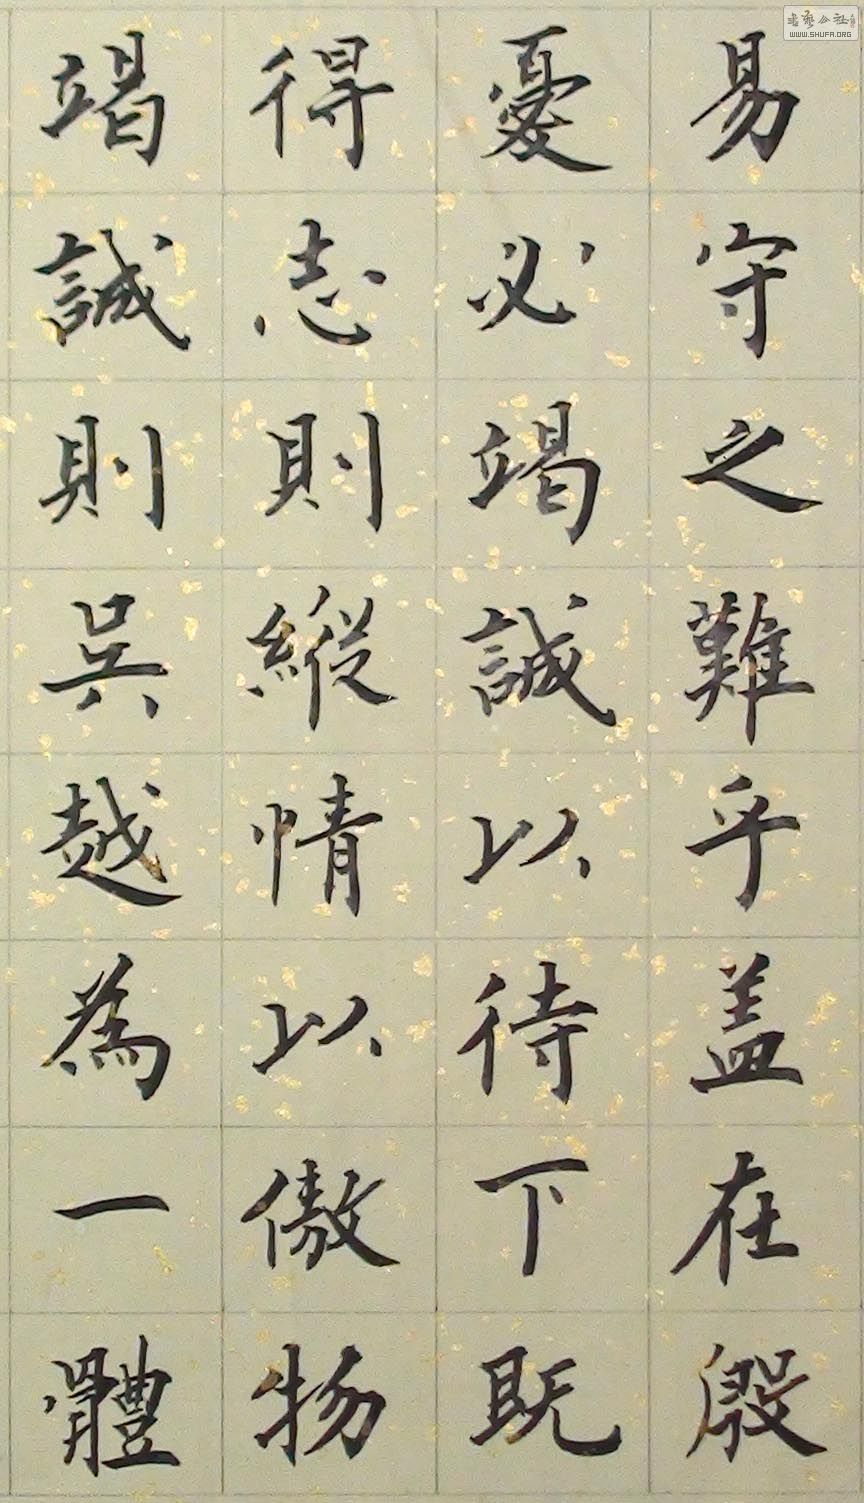 易守之難乎盖在殷
憂必竭誠以待下既
得志則縱情以傲物
竭誠則吳越為一體
书艺公社
WWW.SHUFA.ORG